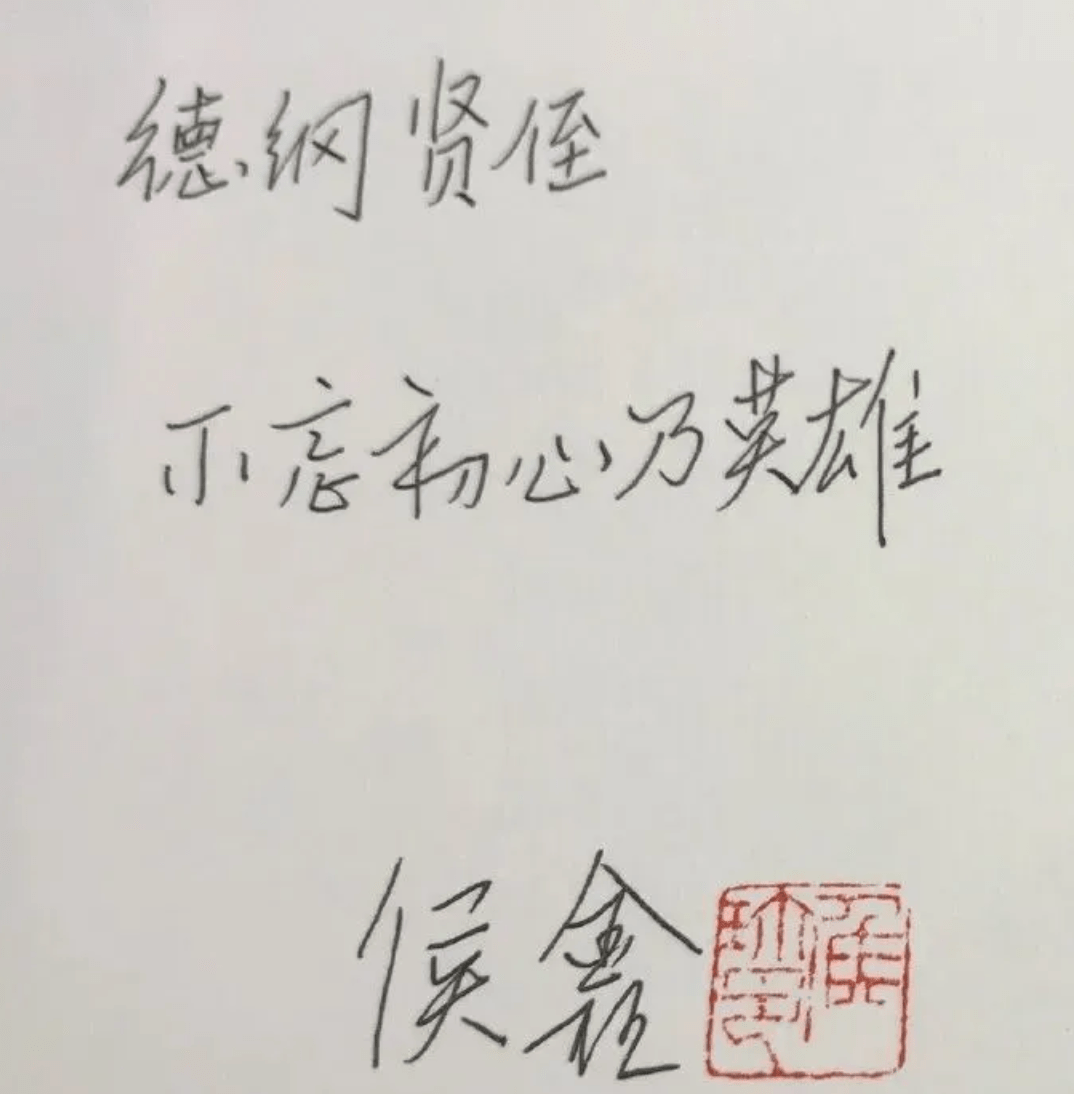 德纲贤侄
不忘初心乃英雄
侯鑫